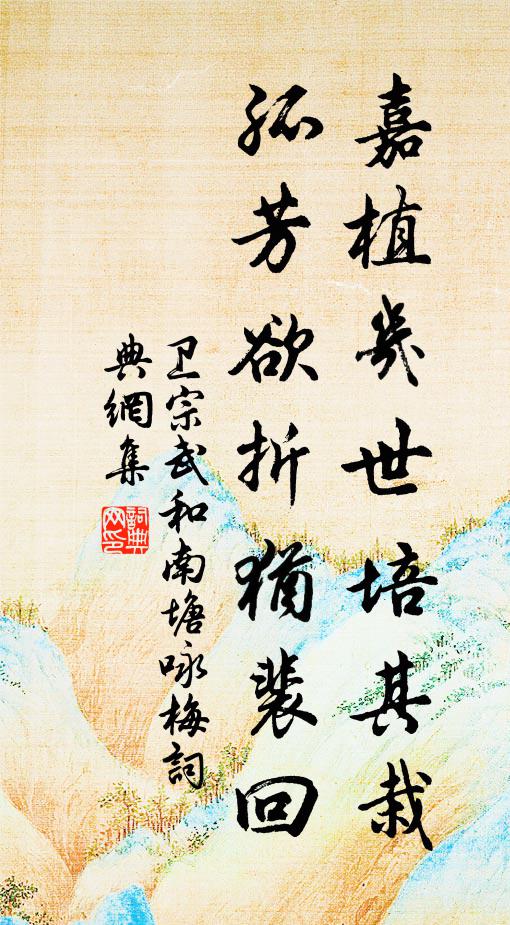 嘉植幾世培其栽
孤芳欲折猶裴回
卫宗武和南塘咏梅詞
典網集
詞典网印